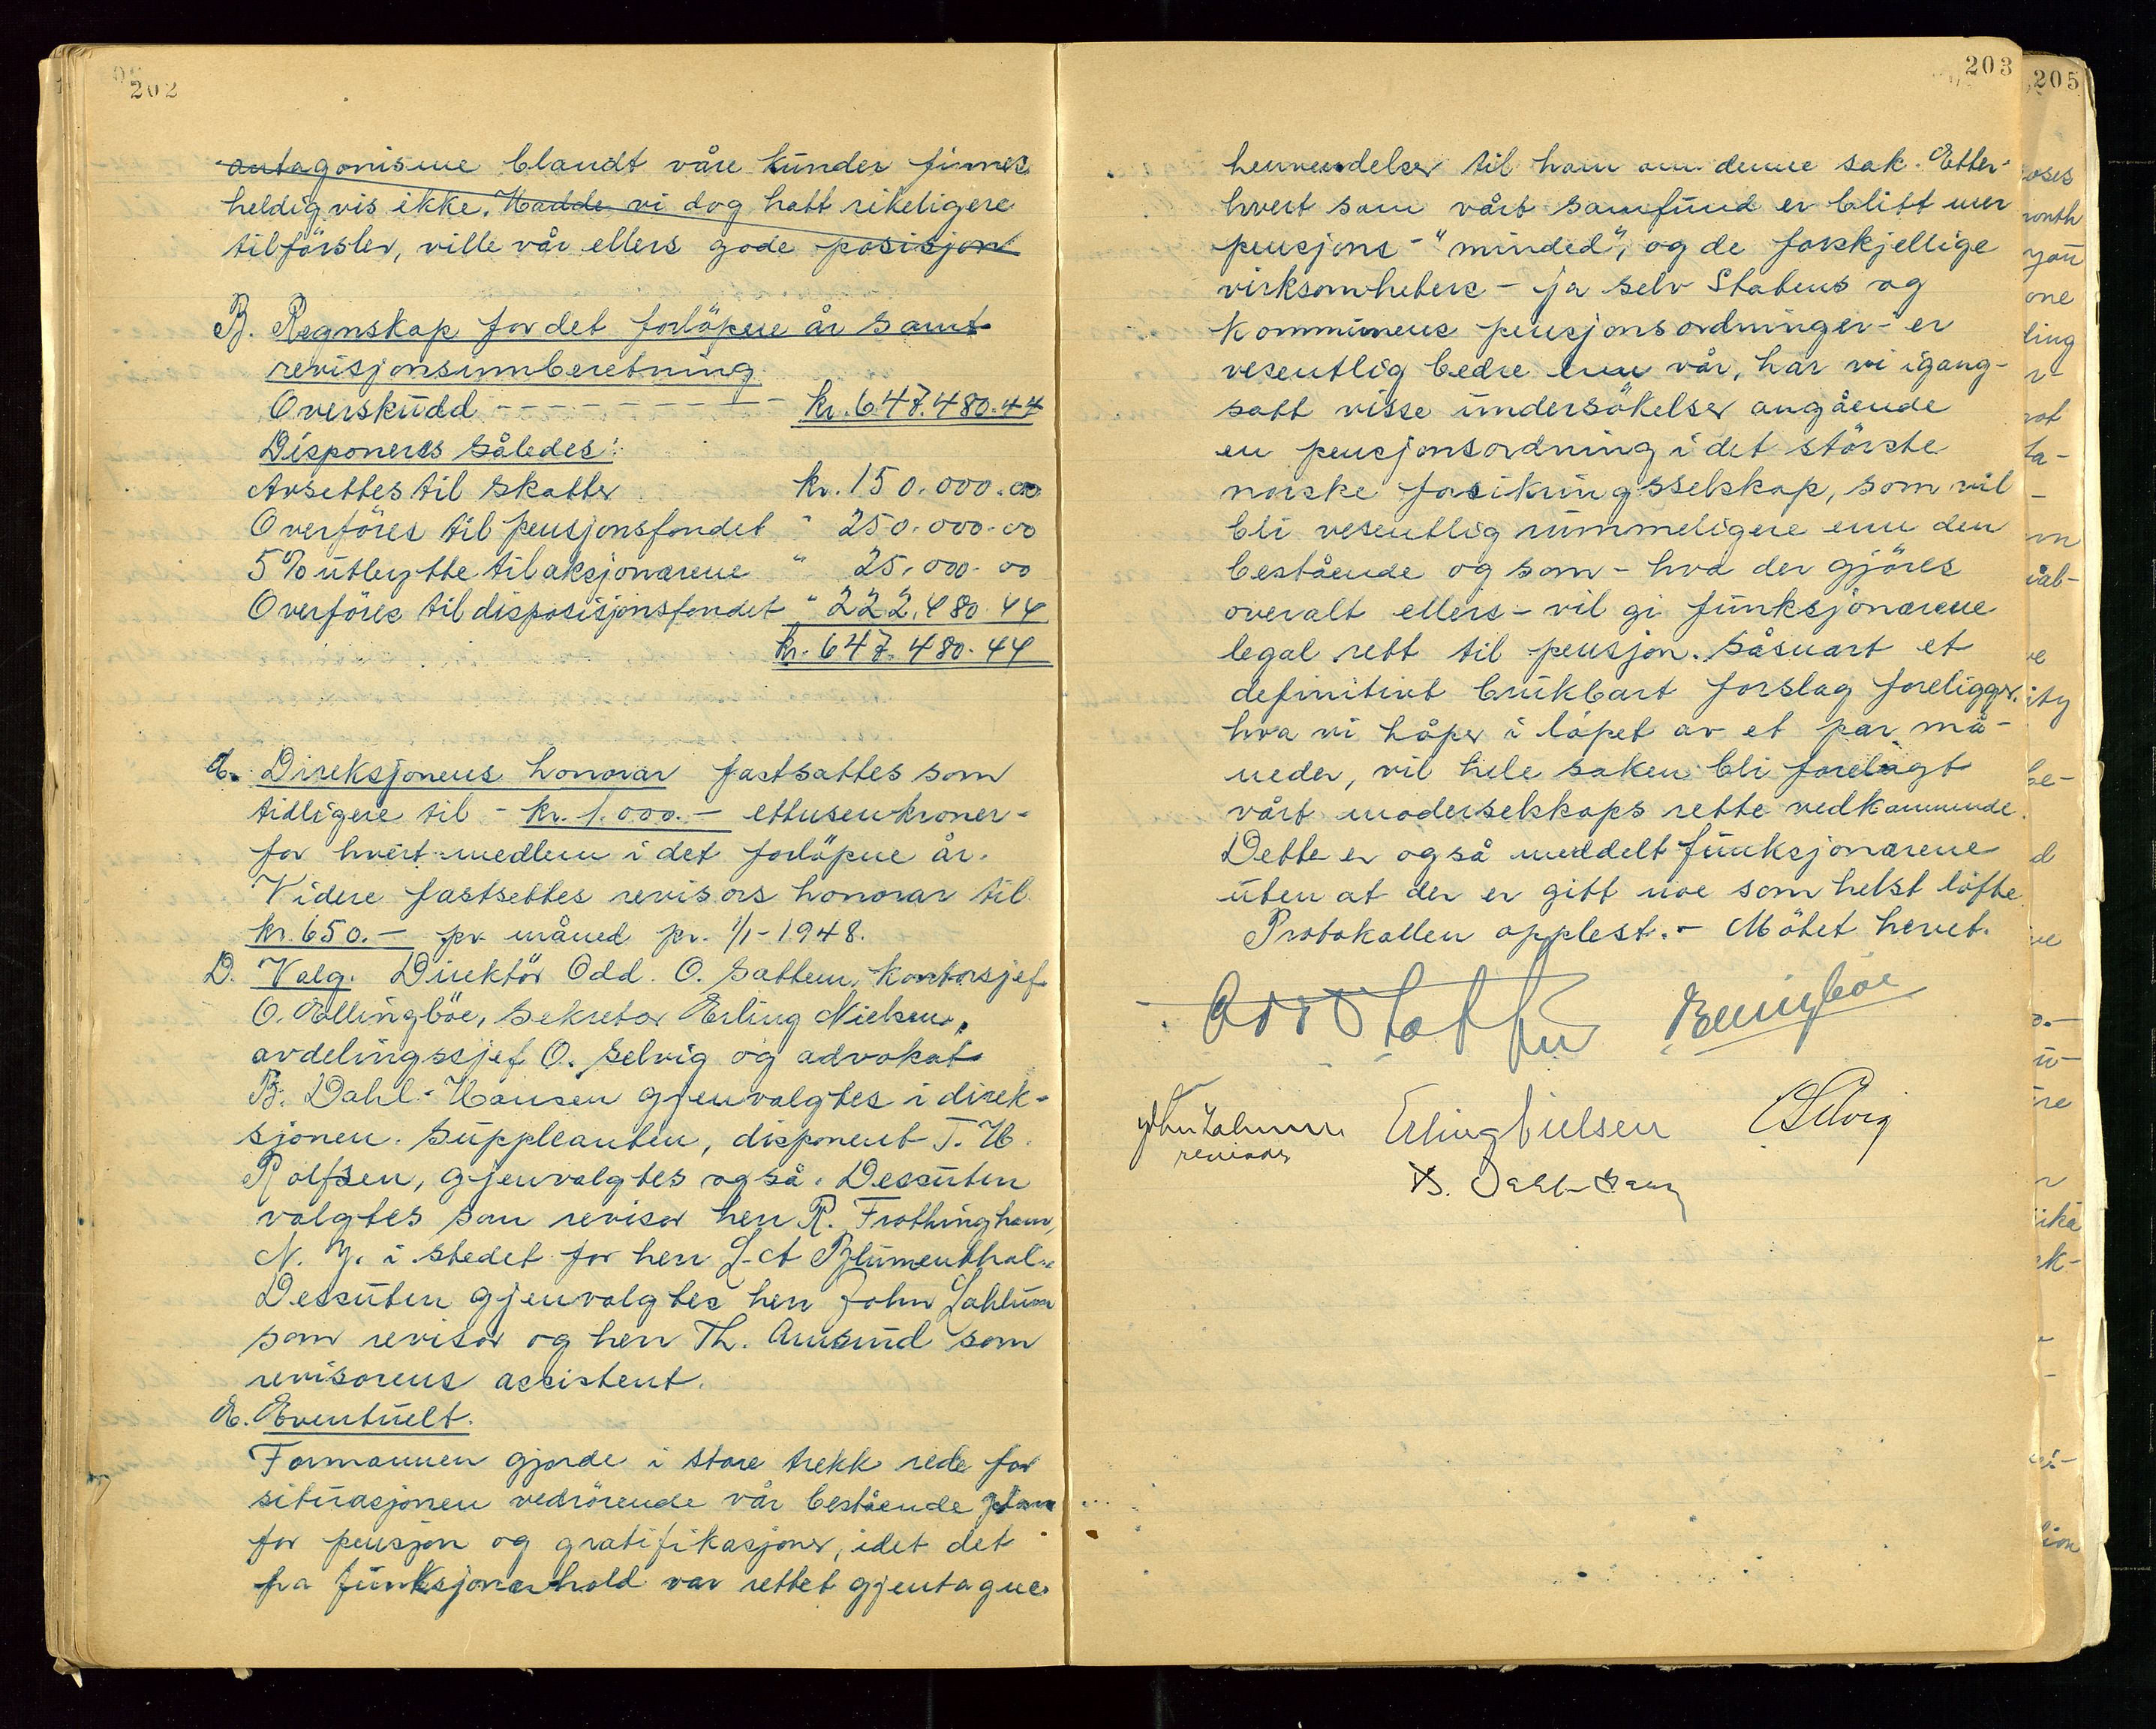 202
antagonisme blandt våre kunder finnes
heldigvis ikke. Hadde vi dog hatt rikeligere
tilförsler, ville vår ellers gode posisjon
B. Regnskap for det forlöpne år samt
revisjonsinnberetning.
Overskudd - - - - - - - - kr. 647.480.44
Disponeres således:
Avsettes til skatter kr. 150.000.00
Overföres til pensjonsfondet " 250.000.00
5% utbytte til aksjonærene " 25.000.00
Overföres til disposisjonsfondet " 222.480.44
kr. 647.480.44
C. Direksjonens honorar fastsattes som
tidligere til - kr. 1.000.- ettusenkroner -
for hvert medlem i det forlöpne år.
Videre fastsettes revisors honorar til
kr. 650.- pr. måned pr. 1/1-1948.
D. Valg. Direktör Odd. O. Sattem, kontorsjef
O. Ellingböe, sekretær Erling Nielsen,
avdelingssjef O. Selvig og advokat
B. Dahl-Hansen gjenvalgtes i direk-
sjonen. Suppleanten, disponent T. H.
Rolfsen, gjenvalgtes også. Dessuten
valgtes som revisor herr R. Frothingham,
N. Y. i stedet for herr L. A. Blumenthal.
Dessuten gjenvalgtes herr John Lahlum
som revisor og herr Th. Amsund som
revisorens assistent.
E. Eventuelt.
Formannen gjorde i store trekk rede for
situasjonen vedrörende vår bestående plan
for pensjon og gratifikasjoner, idet det
fra funksjonærhold var rettet gjentagne
203
henvendelser til ham om denne sak. Etter-
hvert som vårt samfund er blitt mer
pensjons-"minded", og de forskjellige
virksomheters - ja selv Statens og
Kommunens pensjonsordninger - er
vesentlig bedre enn vår, har vi igang-
satt visse undersökelser angående
en pensjonsordning i det störste
norske forsikringsselskap, som vil
bli vesentlig rummeligere enn den
bestående og som - hva der gjöres
overalt ellers - vil gi funksjonærene
legal rett til pensjon. Såsnart et
definitivt brukbart forslag foreligger,
hva vi håper i löpet av et par må-
neder, vil hele saken bli forelagt
vårt moderselskaps rette vedkommende.
Dette er også meddelt funksjonærene
uten at der er gitt noe som helst löfte.
Protokollen opplest. - Mötet hevet.
Odd Sattem Ellingböe
John Lahlum Erling Nielsen O Selvig
revisor
B. Dahl-Hansen
205